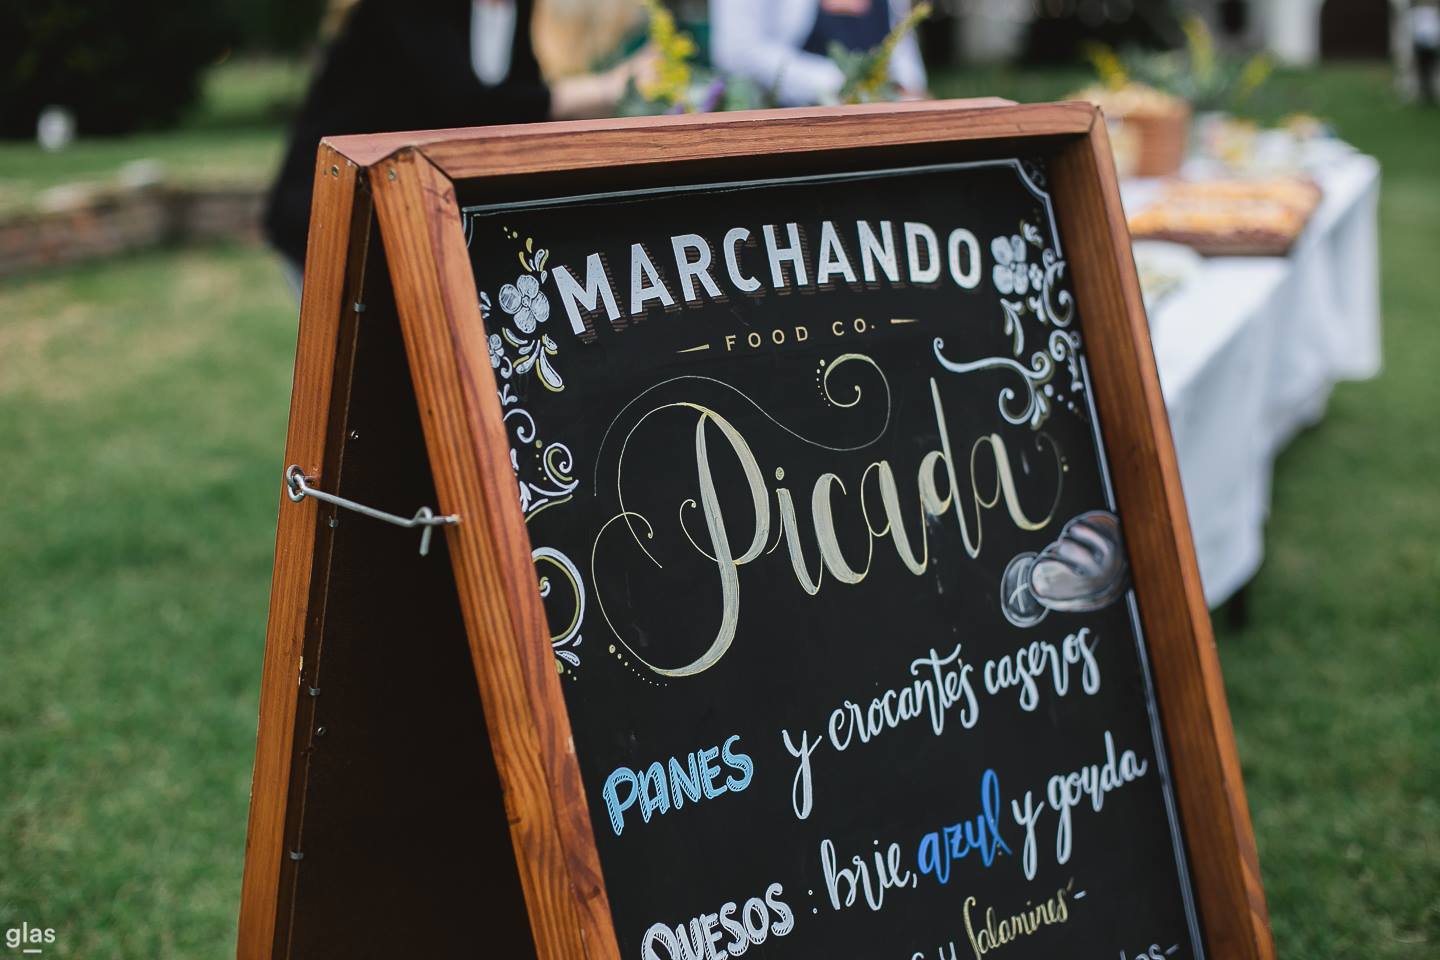 MARCHANDO
FOOD CO.
Picada
PANES y crocantes caseros
QUESOS : brie, azul y gouda
y Salamines -
glas